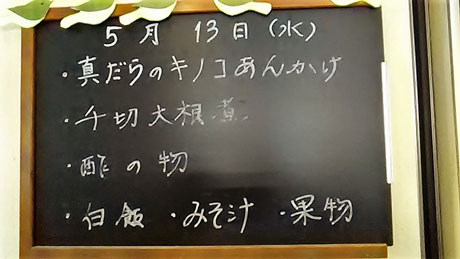 5月 13日(水)
・真だらのキノコあんかけ
・千切大根煮
・酢の物
・白飯 ・みそ汁 ・果物